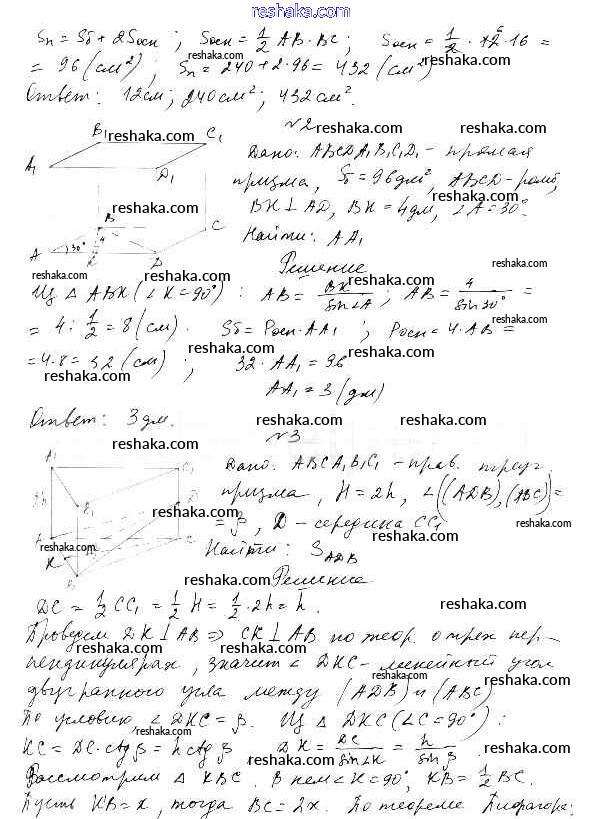 reshaka.com
Sп = Sб + 2Sосн ; Sосн = 1/2 AB · BC ; Sосн = 1/2 · 12 · 16 =
= 96 (см²) ; Sп = 240 + 2·96 = 432 (см²)
Ответ: 12 см; 240 см²; 432 см².
№2
Дано: ABCDA₁B₁C₁D₁ – прямая
призма, Sб = 96 дм², ABCD – ромб,
BK ⊥ AD, BK = 4 дм, ∠A = 30°
Найти: AA₁
Решение
Из △ ABK (∠K = 90°) : AB = BK/sin∠A ; AB = 4/sin30° =
= 4 : 1/2 = 8 (см). Sб = Pосн · AA₁ ; Pосн = 4 · AB =
= 4·8 = 32 (см) ; 32 · AA₁ = 96
AA₁ = 3 (дм)
Ответ: 3 дм.
№3
Дано: ABCA₁B₁C₁ – прав. треуг.
призма, H = 2h, ∠((ADB), (ABC)) =
= β, D – середина CC₁
Найти: SADB
Решение
DC = 1/2 CC₁ = 1/2 H = 1/2 · 2h = h.
Проведем DK ⊥ AB ⇒ CK ⊥ AB по теор. о трех пер-
пендикулярах, значит ∠ DKC – линейный угол
двугранного угла между (ADB) и (ABC)
По условию ∠DKC = β. Из △ DKC (∠C = 90°) :
KC = DC · ctg β = h ctg β DK = DC/sin∠K = h/sin β.
Рассмотрим △ KBC. В нем ∠K = 90°, KB = 1/2 BC.
Пусть KB = x, тогда BC = 2x. По теореме Пифагора:
reshaka.com